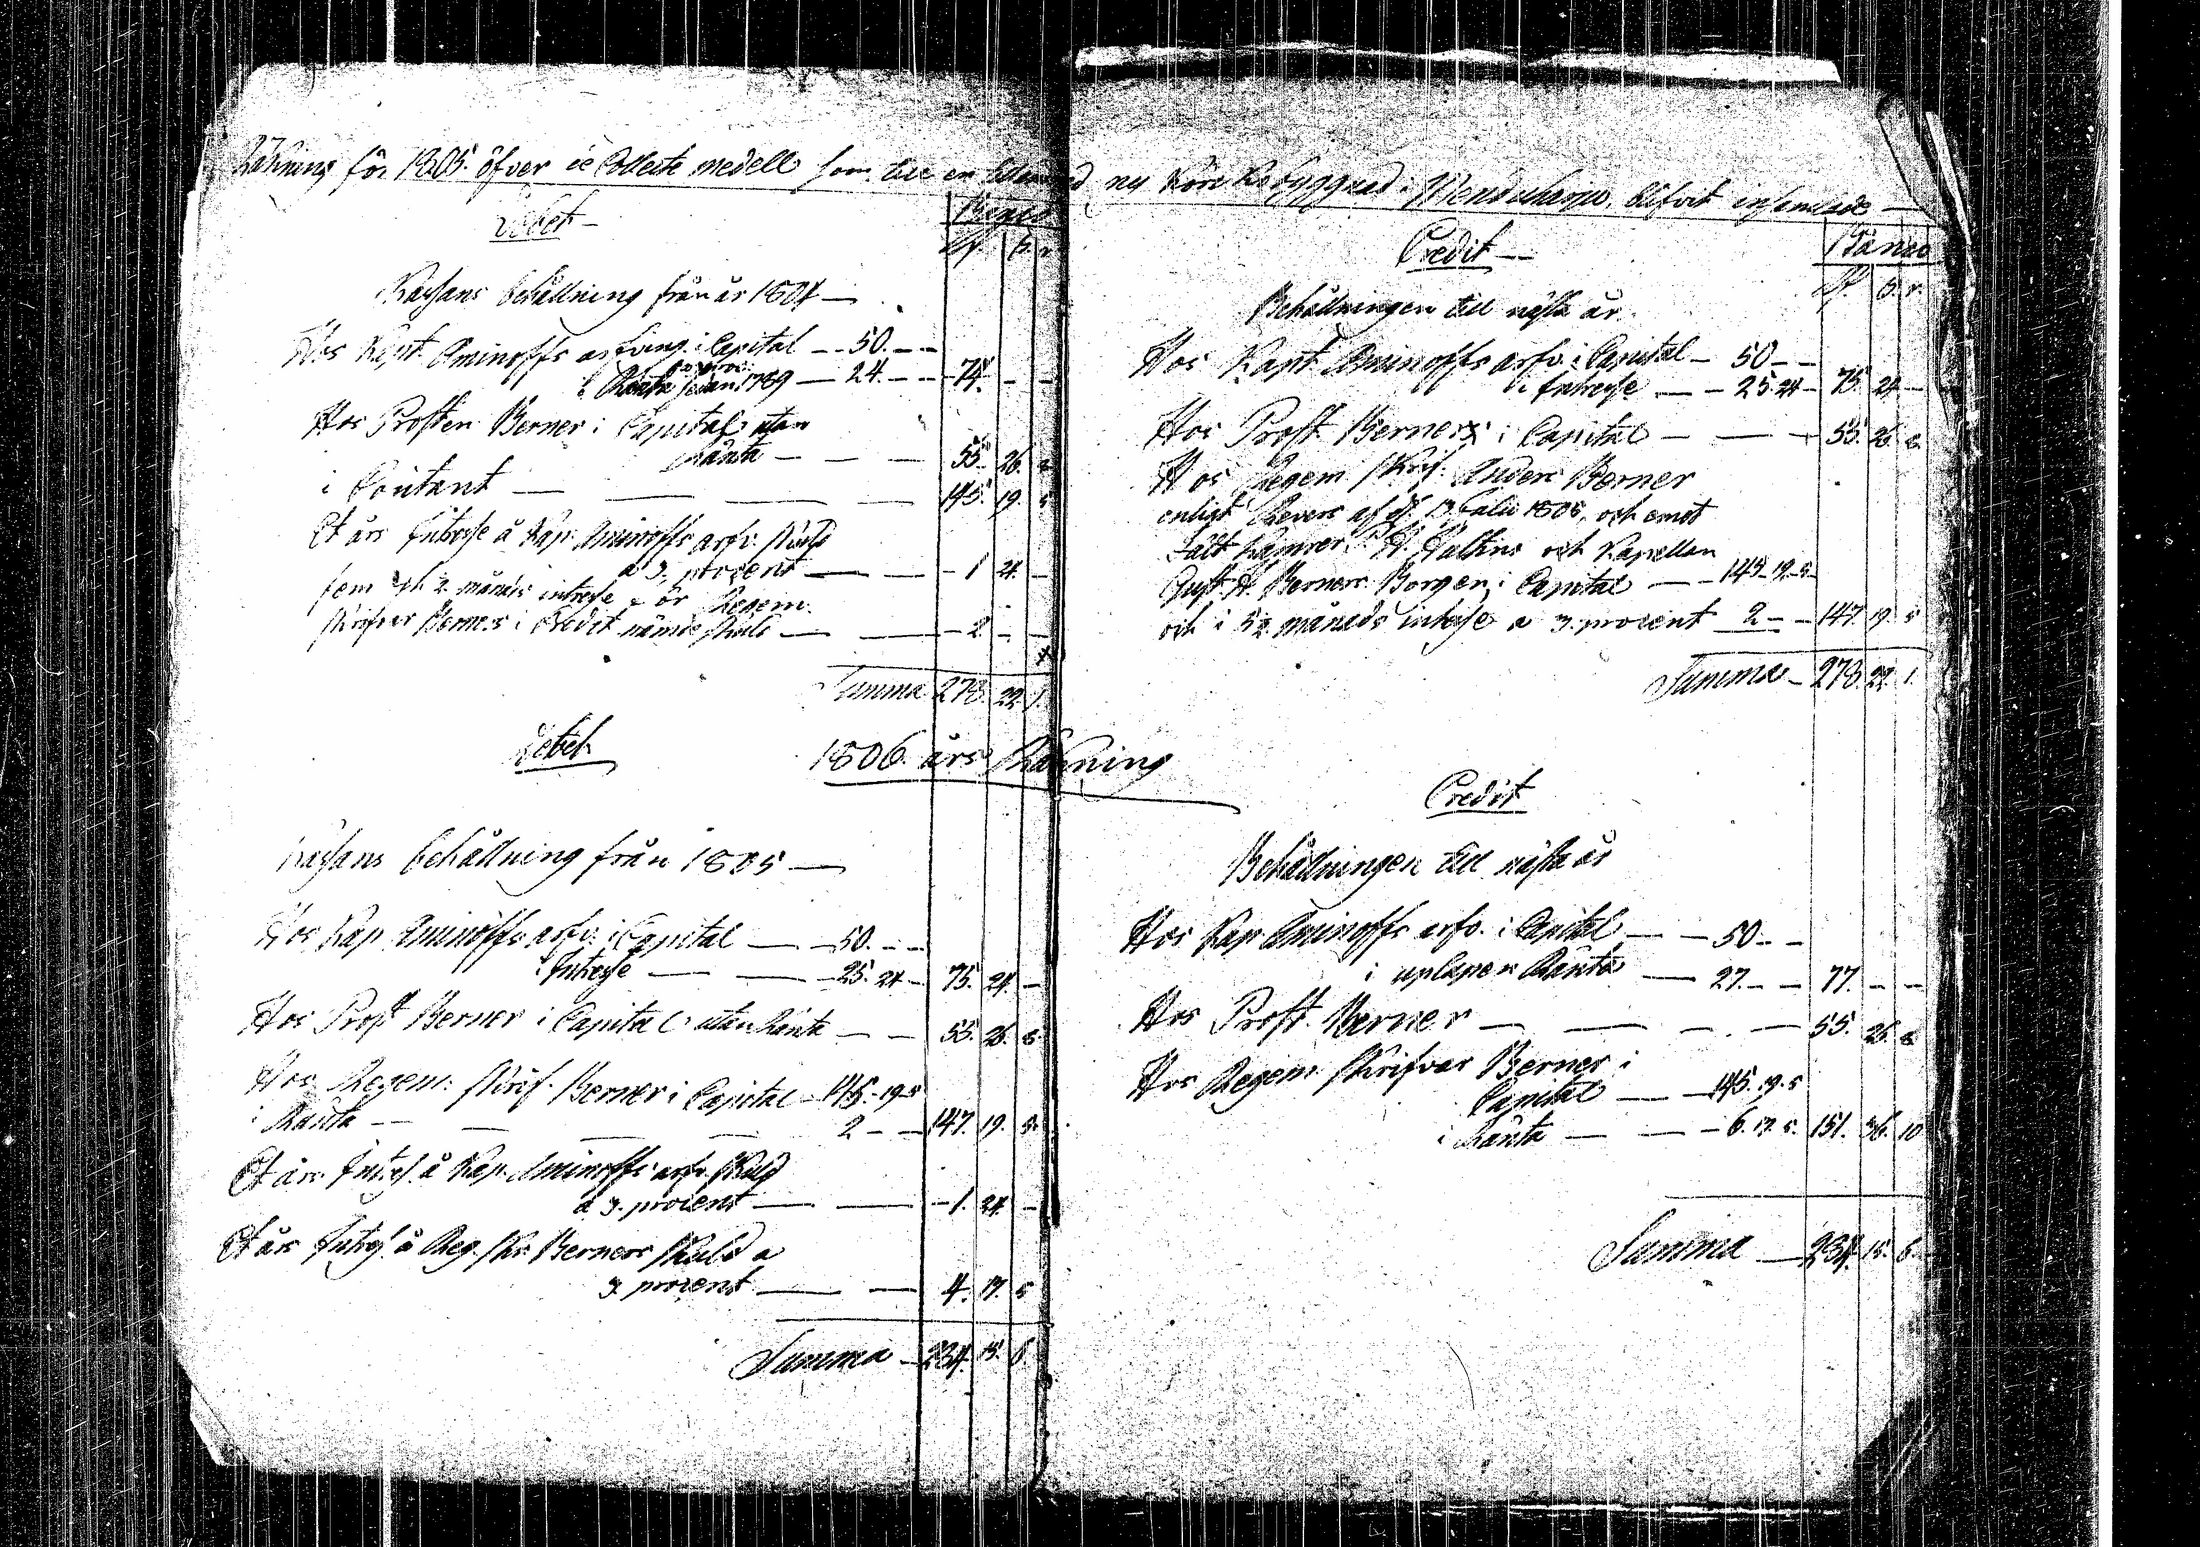 Räkning för 1805. öfver de Collecte medell som till en tillämnad ny Körckobyggnad i Menducharju, blifvit insamlade —
Debet —
Banco
Rd. s. r
Kassans behållning från år 1804 —
Hos Kapt. Aminoffs arfving. i Capital — 50. — —
i Ränta sedan 1789 — 24. — — 74. — —
Hos Prosten Berner i Capital utan
Ränta — — — 55. 26. 8
i Contant — — — — 145. 19. 5
Et års Intresse å Kap. Aminoffs arfv. skuld
a 3. procent — — 1 24. —
som och 2. månads intresse för Regem.
Skrifvar Berners i Credit nämde skuld — — 2 — —
Summa 278. 22. 1.
Credit —
Banco
Rd. s. r.
Behållningen till nästa år
Hos Kapt Aminoffs arfv. i Capital — 50 — —
i Intresse — — 25. 24 — 75. 24 —
Hos Prost Berners i Capital — — — 55. 26. 8.
Hos Regem Skrif. Anders Berner
enligt Revers af d. 13 Julii 1805, och emot
Fält Kamrer. och Kapellan
Gust. A. Berners Borgen, i Capital — — 145. 19. 5
och i 5½ månads intresse a 3. procent 2 — — 147. 19. 5
Summa — 278. 22. 1.
1806 års Räkning
Debet
Kassans behållning från 1805 —
Hos Kap Aminoffs arfv. i Capital — — 50. — —
i Intresse — — 25. 24 — 75. 24. —
Hos Prost Berner i Capital utan Ränta — — 55. 26. 8.
Hos Regem. Skrif. Berner i Capital — 145. 19. 5
i Ränta — — — — 2 — — 147. 19. 5.
Et års Intres. å Kap. Aminoffs arfv. skuld
a 3. procent — — — 1. 24. —
Et års Intres. å Reg. Skr. Berners skuld a
3. procent — — 4. 17. 5
Summa — 284. 15. 6.
Credit
Behållningen till nästa år
Hos Kap. Aminoffs arfv. i Capital — — 50 — —
i uplupen Ränta — 27. — — 77. — —
Hos Prost. Berner — — — — 55. 26. 8
Hos Regem Skrifvar Berner i
Capital — — 145. 19. 5
i Ränta — — — 6. 17. 5. 151. 36. 10
Summa — 284. 15. 6